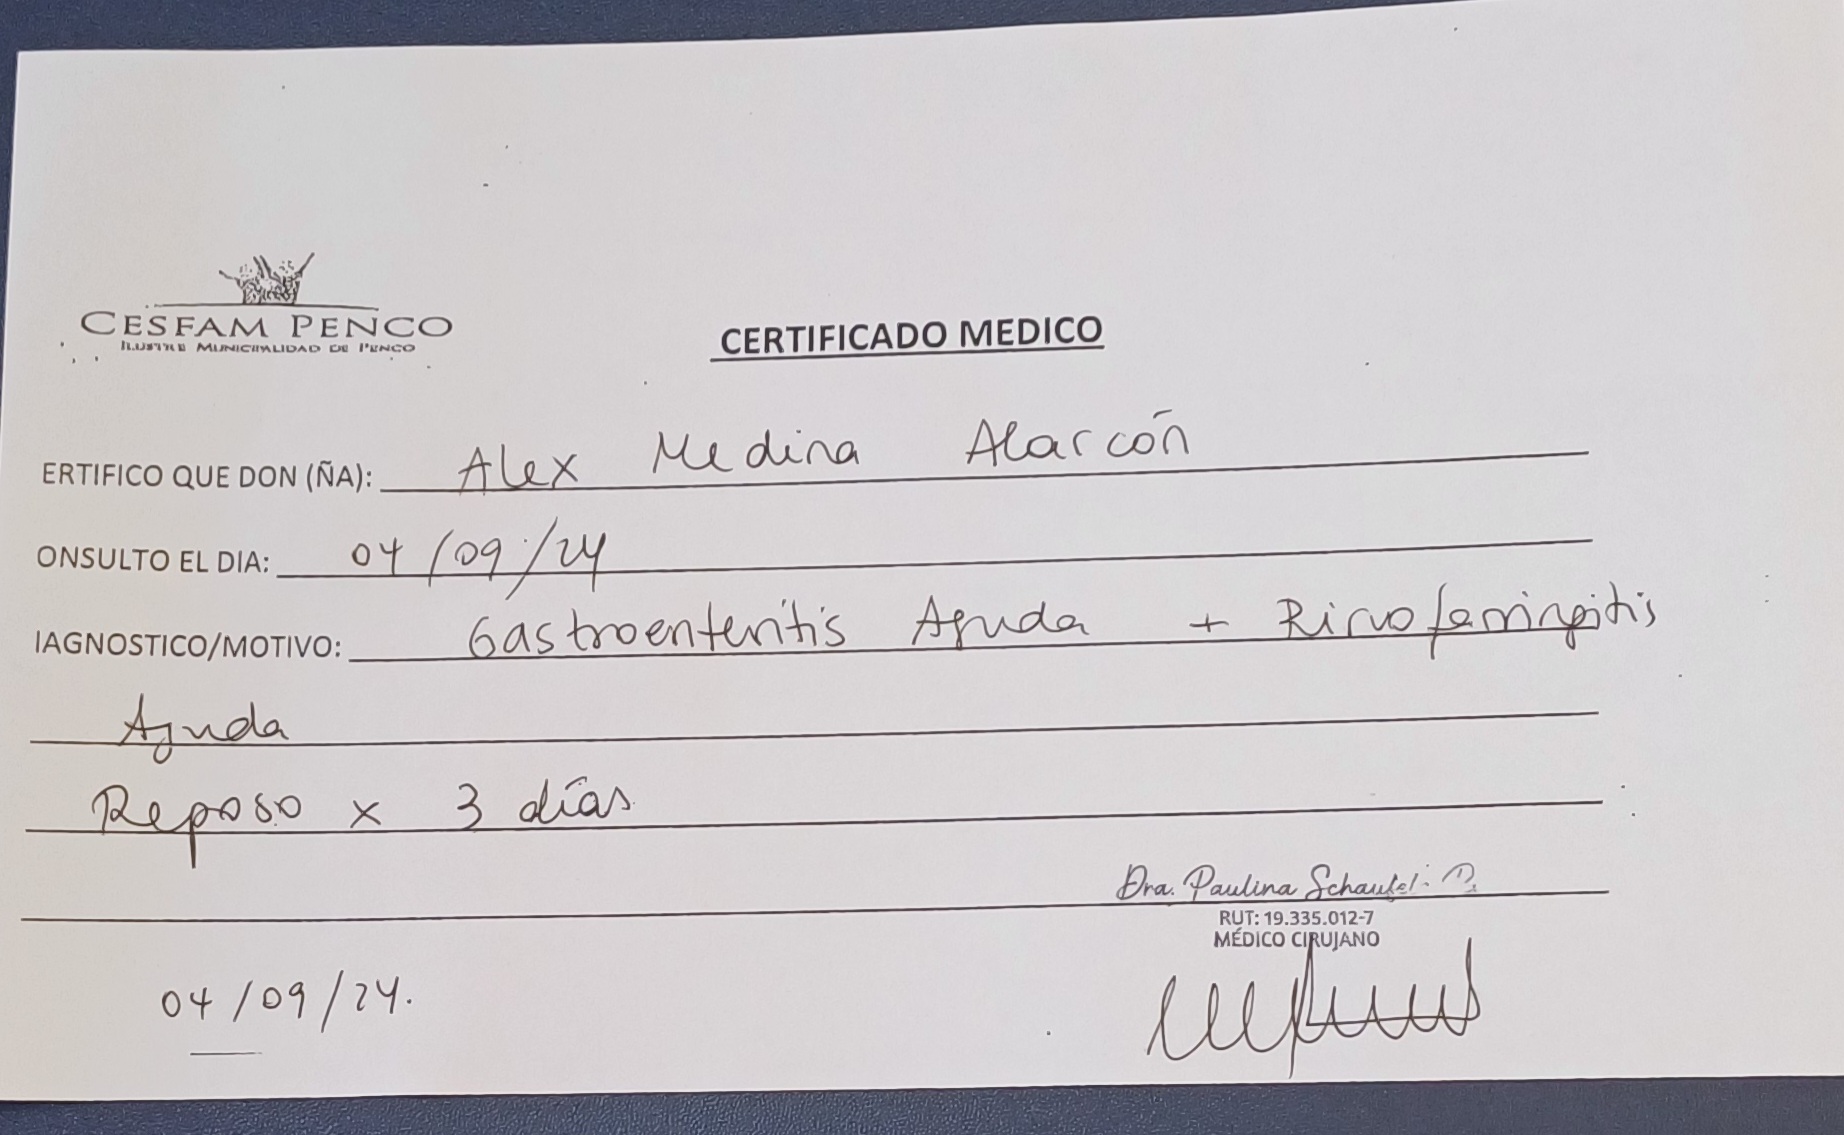 CESFAM PENCO
ILUSTRE MUNICIPALIDAD DE PENCO
CERTIFICADO MEDICO
ERTIFICO QUE DON (ÑA): Alex Medina Alarcón
ONSULTO EL DIA: 04/09/24
IAGNOSTICO/MOTIVO: Gastroenteritis Aguda + Rinofaringitis
Aguda
Reposo x 3 días
Dra. Paulina
RUT: 19.335.012-7
MÉDICO CIRUJANO
04/09/24.